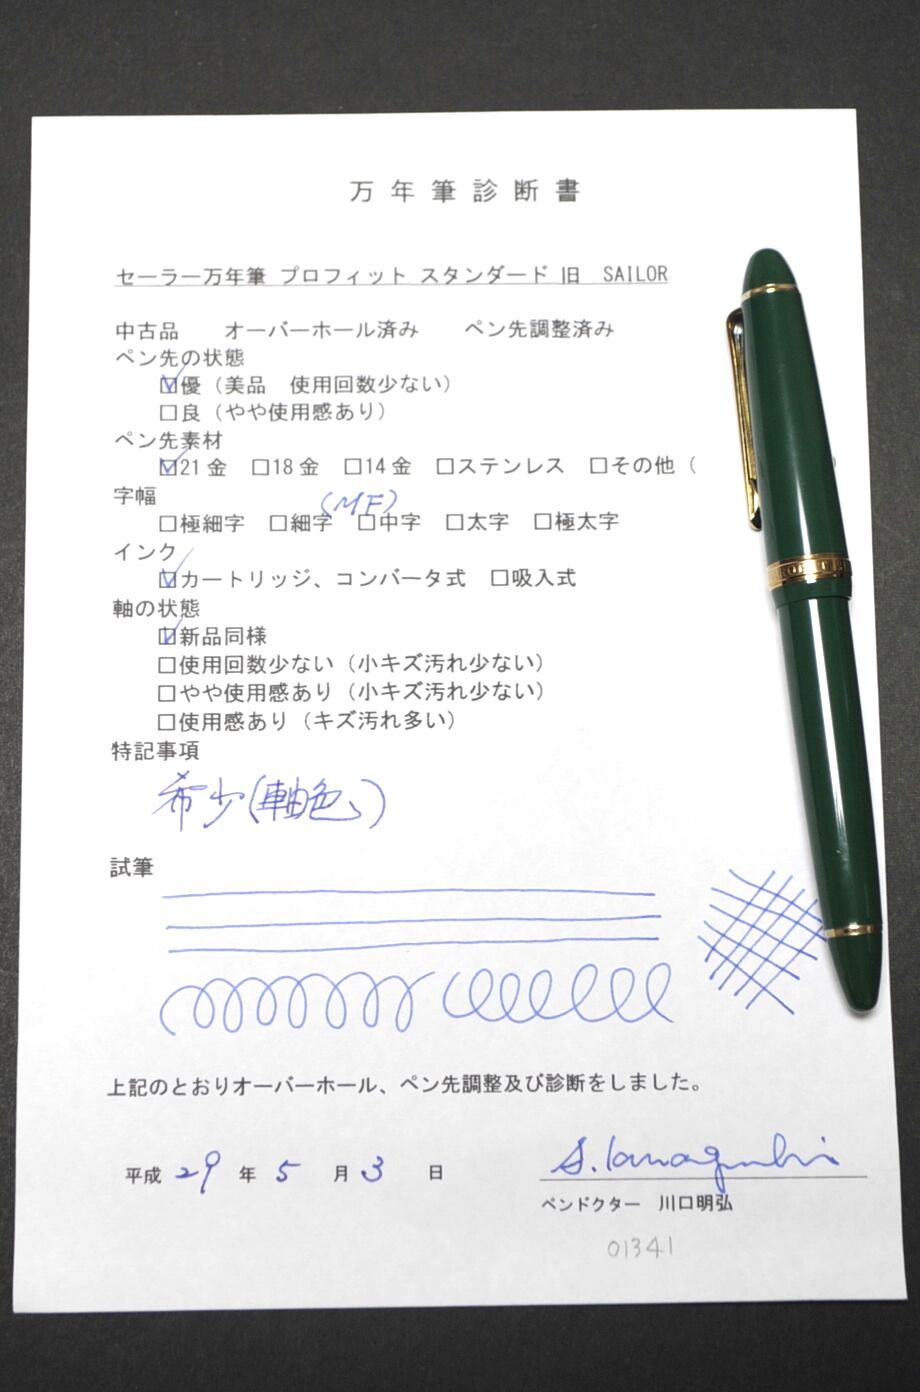 万年筆診断書
セーラー万年筆 プロフィット スタンダード 旧 SAILOR
中古品 オーバーホール済み ペン先調整済み
ペン先の状態
☑優（美品 使用回数少ない）
□良（やや使用感あり）
ペン先素材
☑21金 □18金 □14金 □ステンレス □その他（
字幅
(MF)
□極細字 □細字 □中字 □太字 □極太字
インク
☑カートリッジ、コンバータ式 □吸入式
軸の状態
☑新品同様
□使用回数少ない（小キズ汚れ少ない）
□やや使用感あり（小キズ汚れ少ない）
□使用感あり（キズ汚れ多い）
特記事項
希少(軸色)
試筆
上記のとおりオーバーホール、ペン先調整及び診断をしました。
平成 29 年 5 月 3 日
ペンドクター 川口明弘
01341